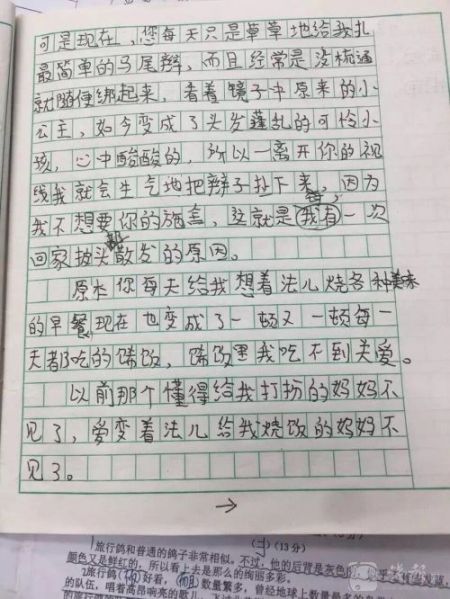 可是现在，您每天只是草草地给我扎
最简单的马尾辫，而且经常是没梳通
就随便绑起来，看着镜子中原来的小
公主，如今变成了头发蓬乱的可怜小
孩，心中酸酸的，所以一离开你的视
线我就会生气地把辫子扯下来，因为
我不想要你的施舍，这就是我每有一次
回家披头散发的原因。
原本你每天给我想着法儿烧各种美味
的早餐现在也变成了一顿又一顿每一
天都吃的稀饭，稀饭里我吃不到关爱。
以前那个懂得给我打扮的妈妈不
见了，爱变着法儿给我烧饭的妈妈不
见了。
→
(13分)
旅行鸽和普通的鸽子非常相似。不过，他的后背是灰色的
颜色又是鲜红的，所以看上去是那么的绚丽多彩。
好看，数量繁多，曾经是地球上数量最多的
的队伍，唱着高昂响亮的歌儿